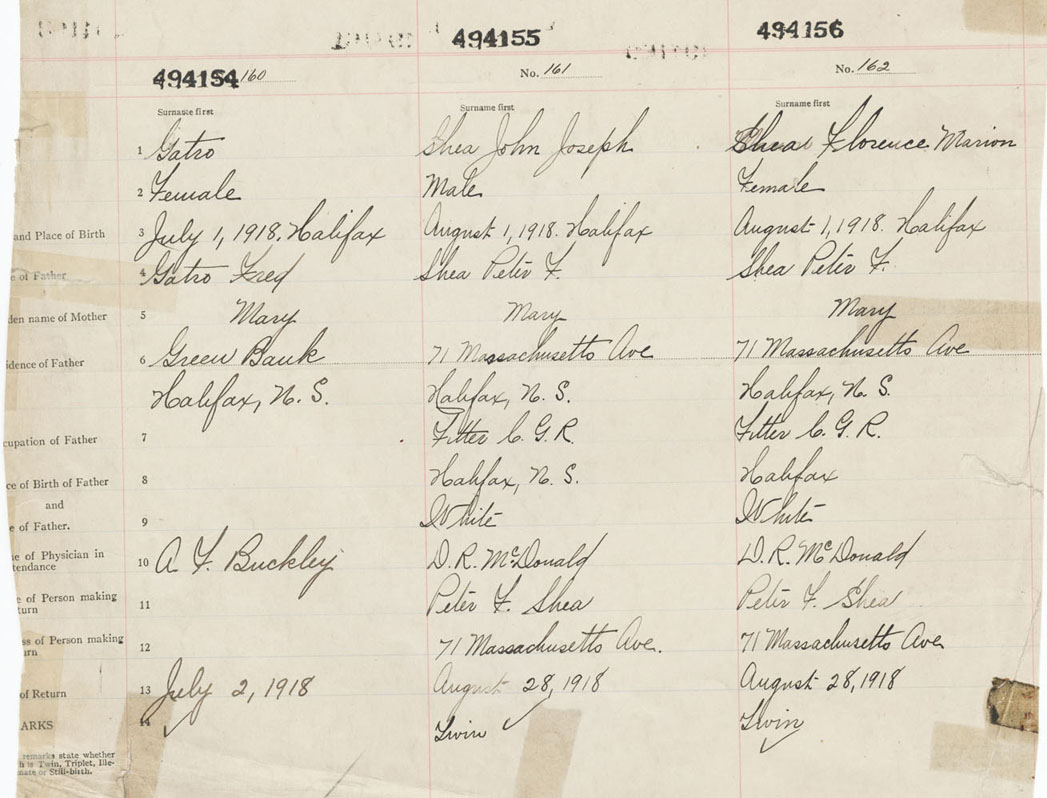 494154 160
494155
No. 161
494156
No. 162
Surname first
Surname first
Surname first
1 Gatro
Shea John Joseph
Shea Florence Marion
2 Female
Male
Female
and Place of Birth
3 July 1, 1918. Halifax
August 1, 1918. Halifax
August 1, 1918. Halifax
e of Father
4 Gatro Fred
Shea Peter F.
Shea Peter F.
den name of Mother
5 Mary
Mary
Mary
idence of Father
6 Green Bank
71 Massachusetts Ave
71 Massachusetts Ave
Halifax, N. S.
Halifax, N. S.
Halifax, N. S.
cupation of Father
7
Fitter C. G. R.
Fitter C. G. R.
ce of Birth of Father
8
Halifax, N. S.
Halifax
and
e of Father.
9
White
White
e of Physician in
tendance
10 A. F. Buckley
D. R. McDonald
D. R. McDonald
e of Person making
turn
11
Peter F. Shea
Peter F. Shea
ss of Person making
urn
12
71 Massachusetts Ave.
71 Massachusetts Ave
of Return
13 July 2, 1918
August 28, 1918
August 28, 1918
ARKS
14
Twin
Twin
remarks state whether
h is Twin, Triplet, Ille-
mate or Still-birth.